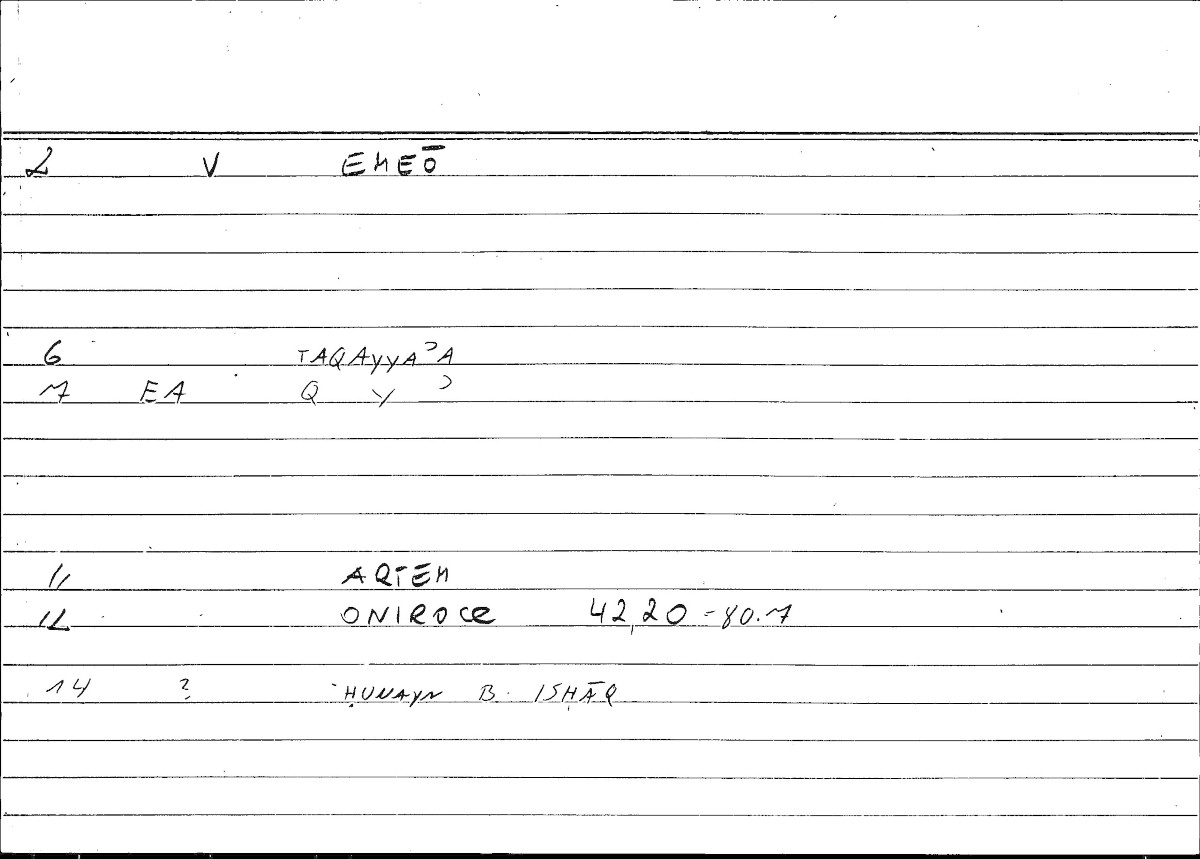 2 V EMEŌ
6 TAQAYYAʾA
7 EA Q Y ʾ
11 ARTEM
12 ONIROCR 42,20-80.7
14 ? ḤUNAYN B. ISḤĀQ